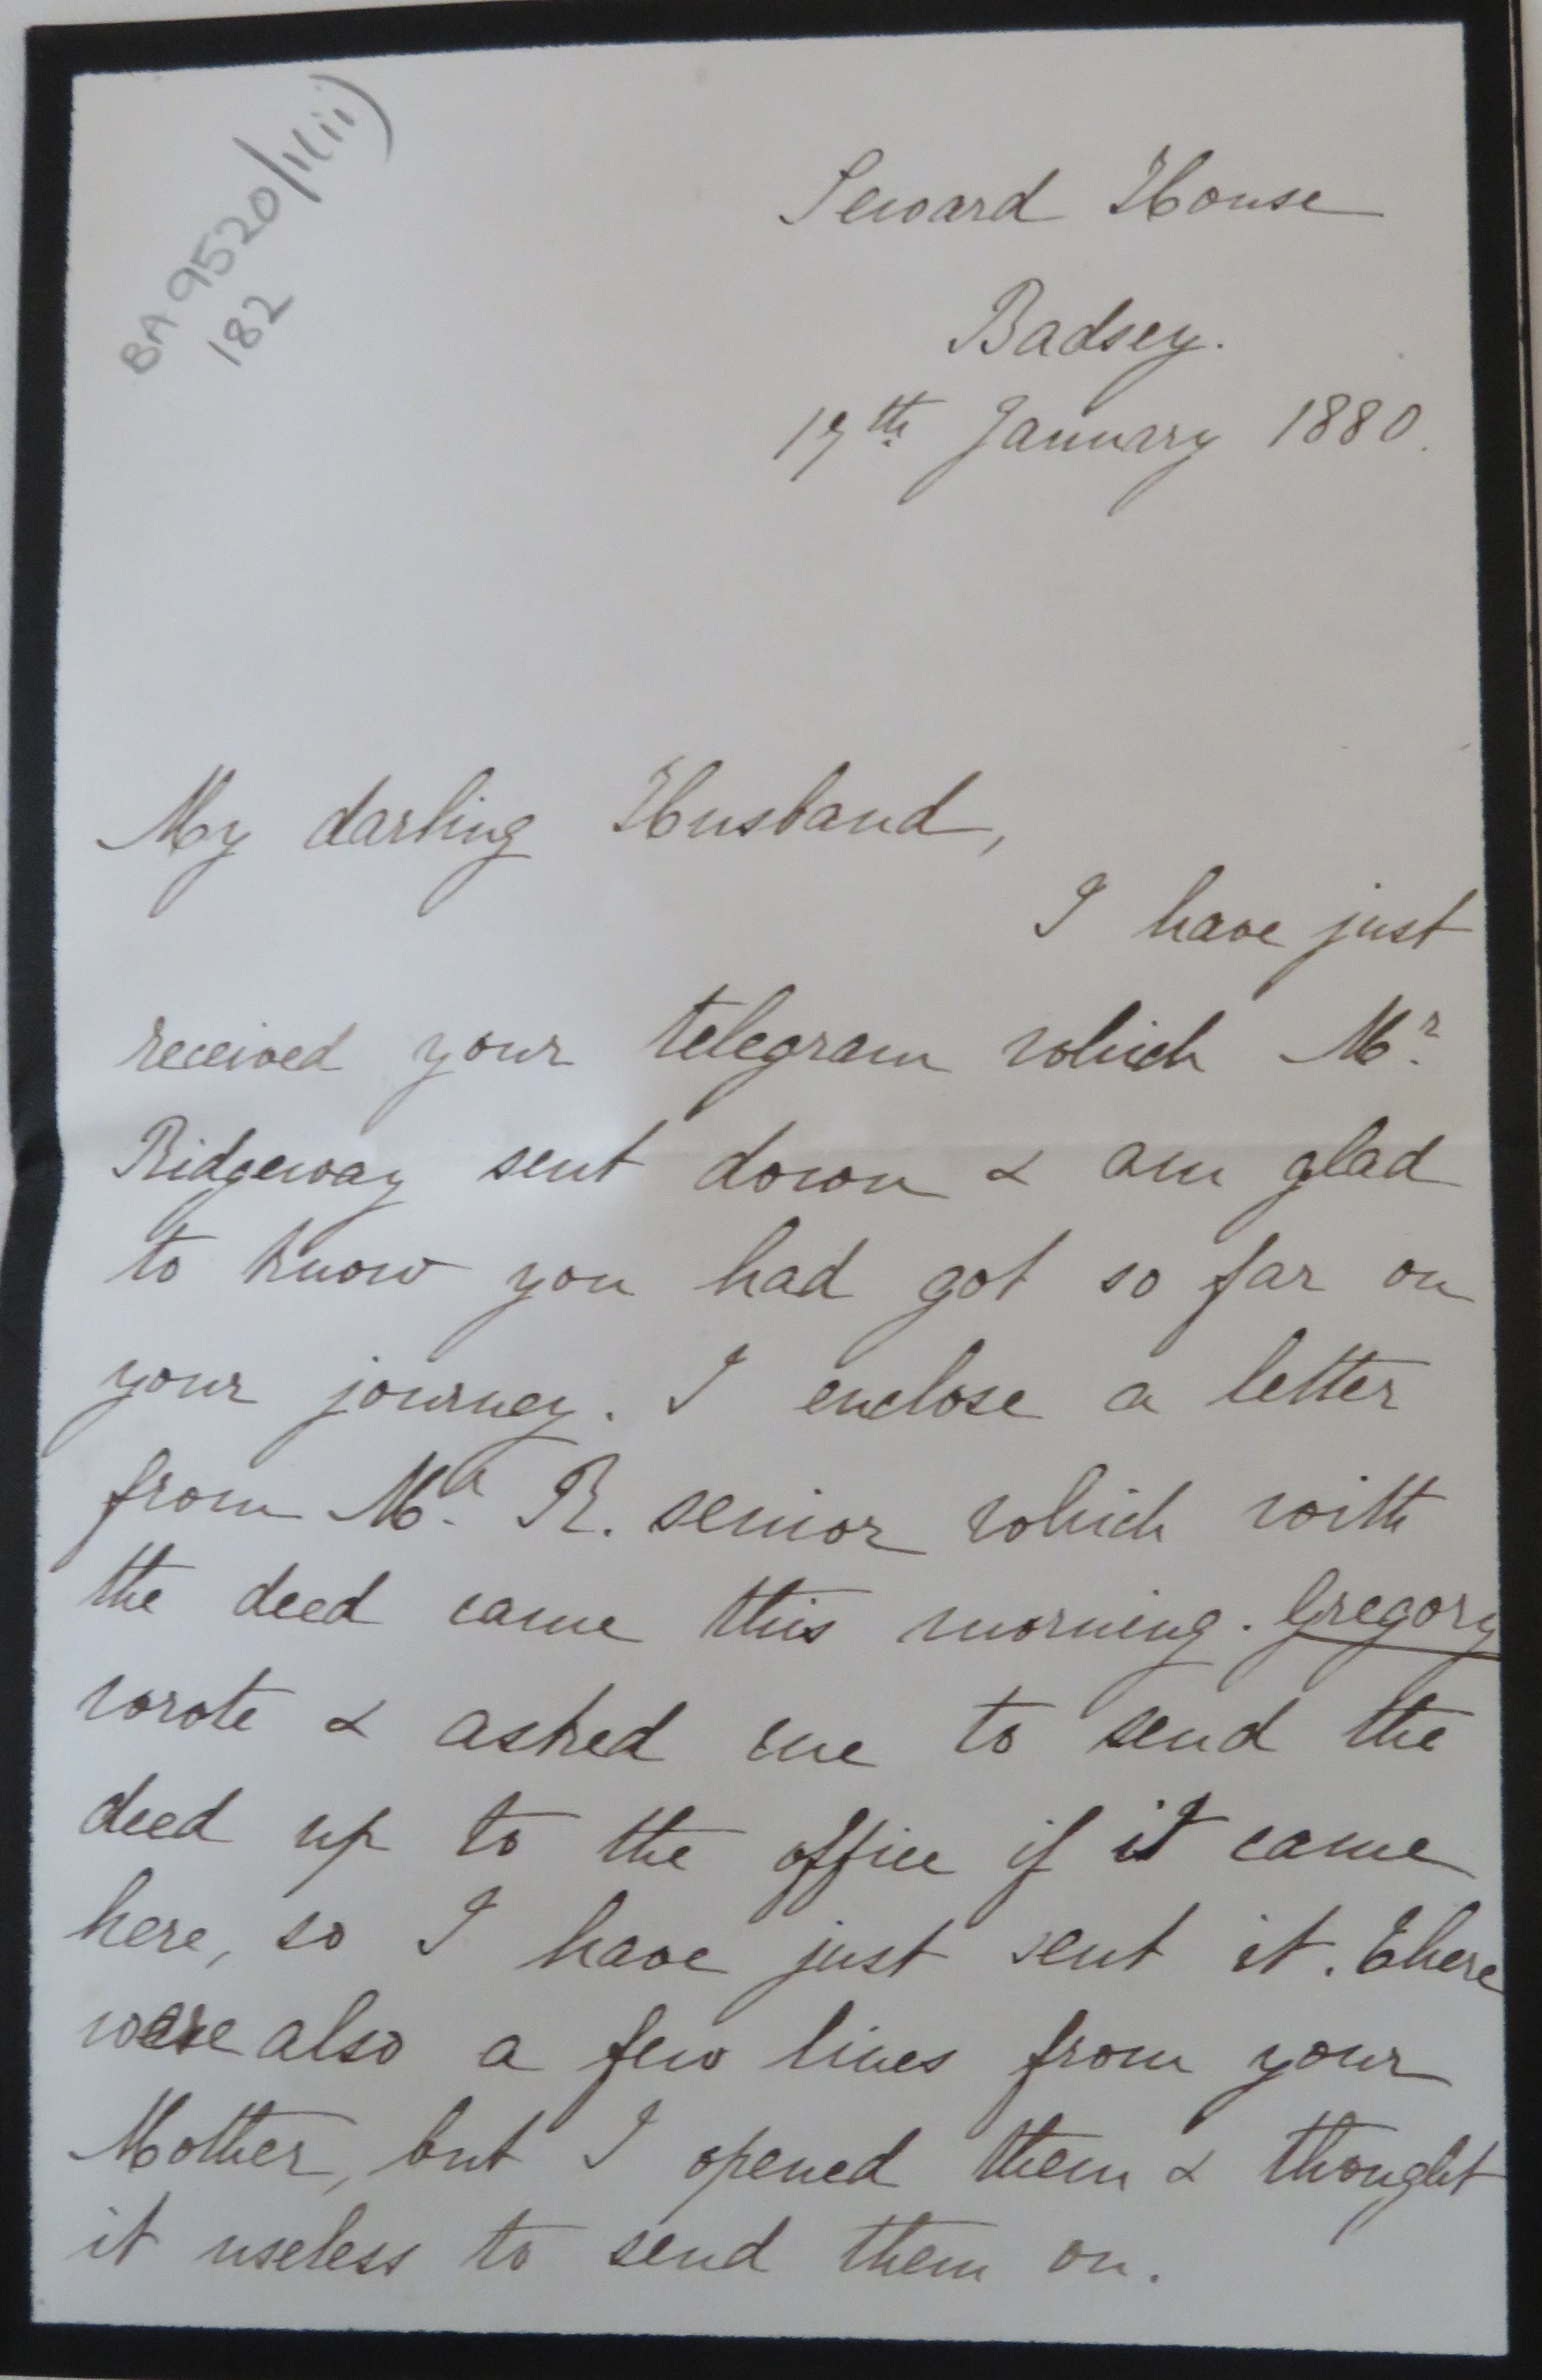 BA 9520/1(iii)
182
Seward House
Badsey.
17th January 1880.
My darling Husband,
I have just
received your telegram which Mr.
Ridgeway sent down & am glad
to know you had got so far on
your journey. I enclose a letter
from Mr. R. senior which with
the deed came this morning. Gregory
wrote & asked me to send the
deed up to the office if it came
here, so I have just sent it. There
were also a few lines from your
Mother, but I opened them & thought
it useless to send them on.